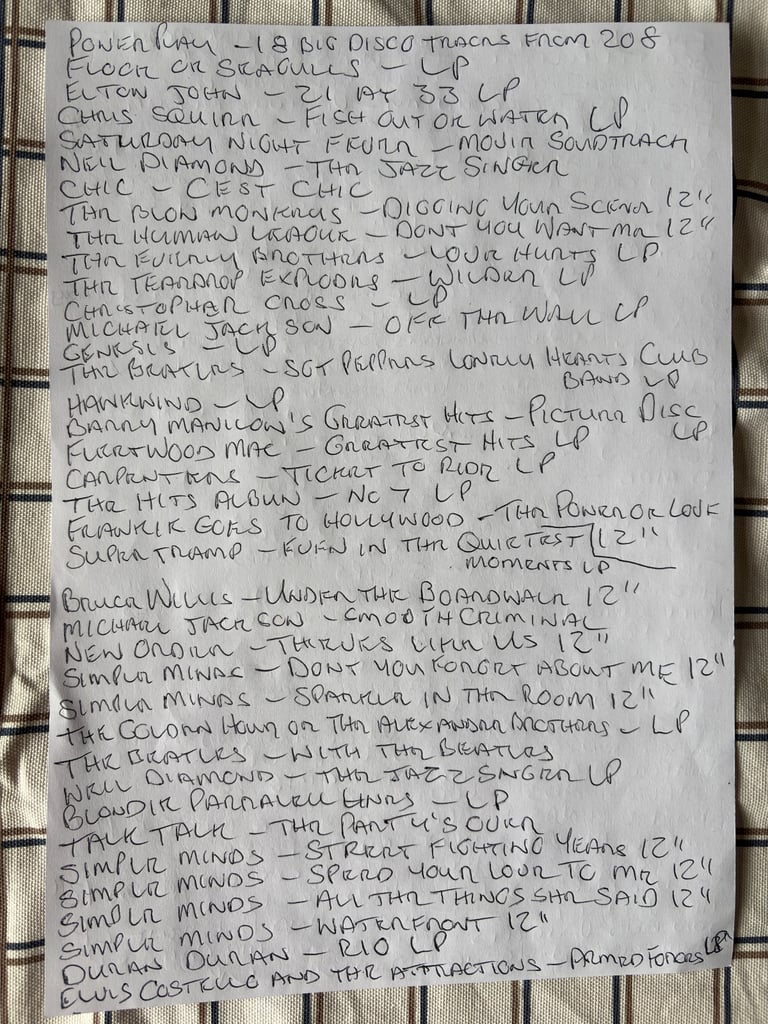 POWER PLAY - 18 BIG DISCO TRACKS FROM 208
FLOCK OF SEAGULLS - LP
ELTON JOHN - 21 AT 33 LP
CHRIS SQUIRE - FISH OUT OF WATER LP
SATURDAY NIGHT FEVER - MOVIE SOUDTRACK
NEIL DIAMOND - THE JAZZ SINGER
CHIC - C'EST CHIC
THE BLOW MONKEYS - DIGGING YOUR SCENE 12"
THE HUMAN LEAGUE - DONT YOU WANT ME 12"
THE EVERLY BROTHERS - LOVE HURTS LP
THE TEARDROP EXPLODES - WILDER LP
CHRISTOPHER CROSS - LP
MICHAEL JACKSON - OFF THE WALL LP
GENESIS - LP
THE BEATLES - SGT PEPPERS LONELY HEARTS CLUB
BAND LP
HAWKWIND - LP
BARRY MANILOW'S GREATEST HITS - PICTURE DISC
LP
FLEETWOOD MAC - GREATEST HITS LP
CARPENTERS - TICKET TO RIDE LP
THE HITS ALBUM - NO 7 LP
FRANKIE GOES TO HOLLYWOOD - THE POWER OF LOVE
SUPERTRAMP - EVEN IN THE QUIETEST 12"
MOMENTS LP
BRUCE WILLIS - UNDER THE BOARDWALK 12"
MICHAEL JACKSON - SMOOTH CRIMINAL
NEW ORDER - THIEVES LIKE US 12"
SIMPLE MINDS - DONT YOU FORGET ABOUT ME 12"
SIMPLE MINDS - SPARKLE IN THE ROOM 12"
THE GOLDEN HOUR OF THE ALEXANDER BROTHERS - LP
THE BEATLES - WITH THE BEATLES
NEIL DIAMOND - THE JAZZ SINGER LP
BLONDIE PARRALELL LINES - LP
TALK TALK - THE PARTY'S OVER
SIMPLE MINDS - STREET FIGHTING YEARS 12"
SIMPLE MINDS - SPEED YOUR LOVE TO ME 12"
SIMPLE MINDS - ALL THE THINGS SHE SAID 12"
SIMPLE MINDS - WATERFRONT 12"
DURAN DURAN - RIO LP
ELVIS COSTELLO AND THE ATTRACTIONS - ARMED FORCES LP